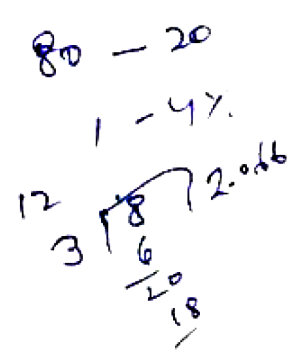 80 - 20
1 - 4%.
12
3 8 2.0.66
6
20
18